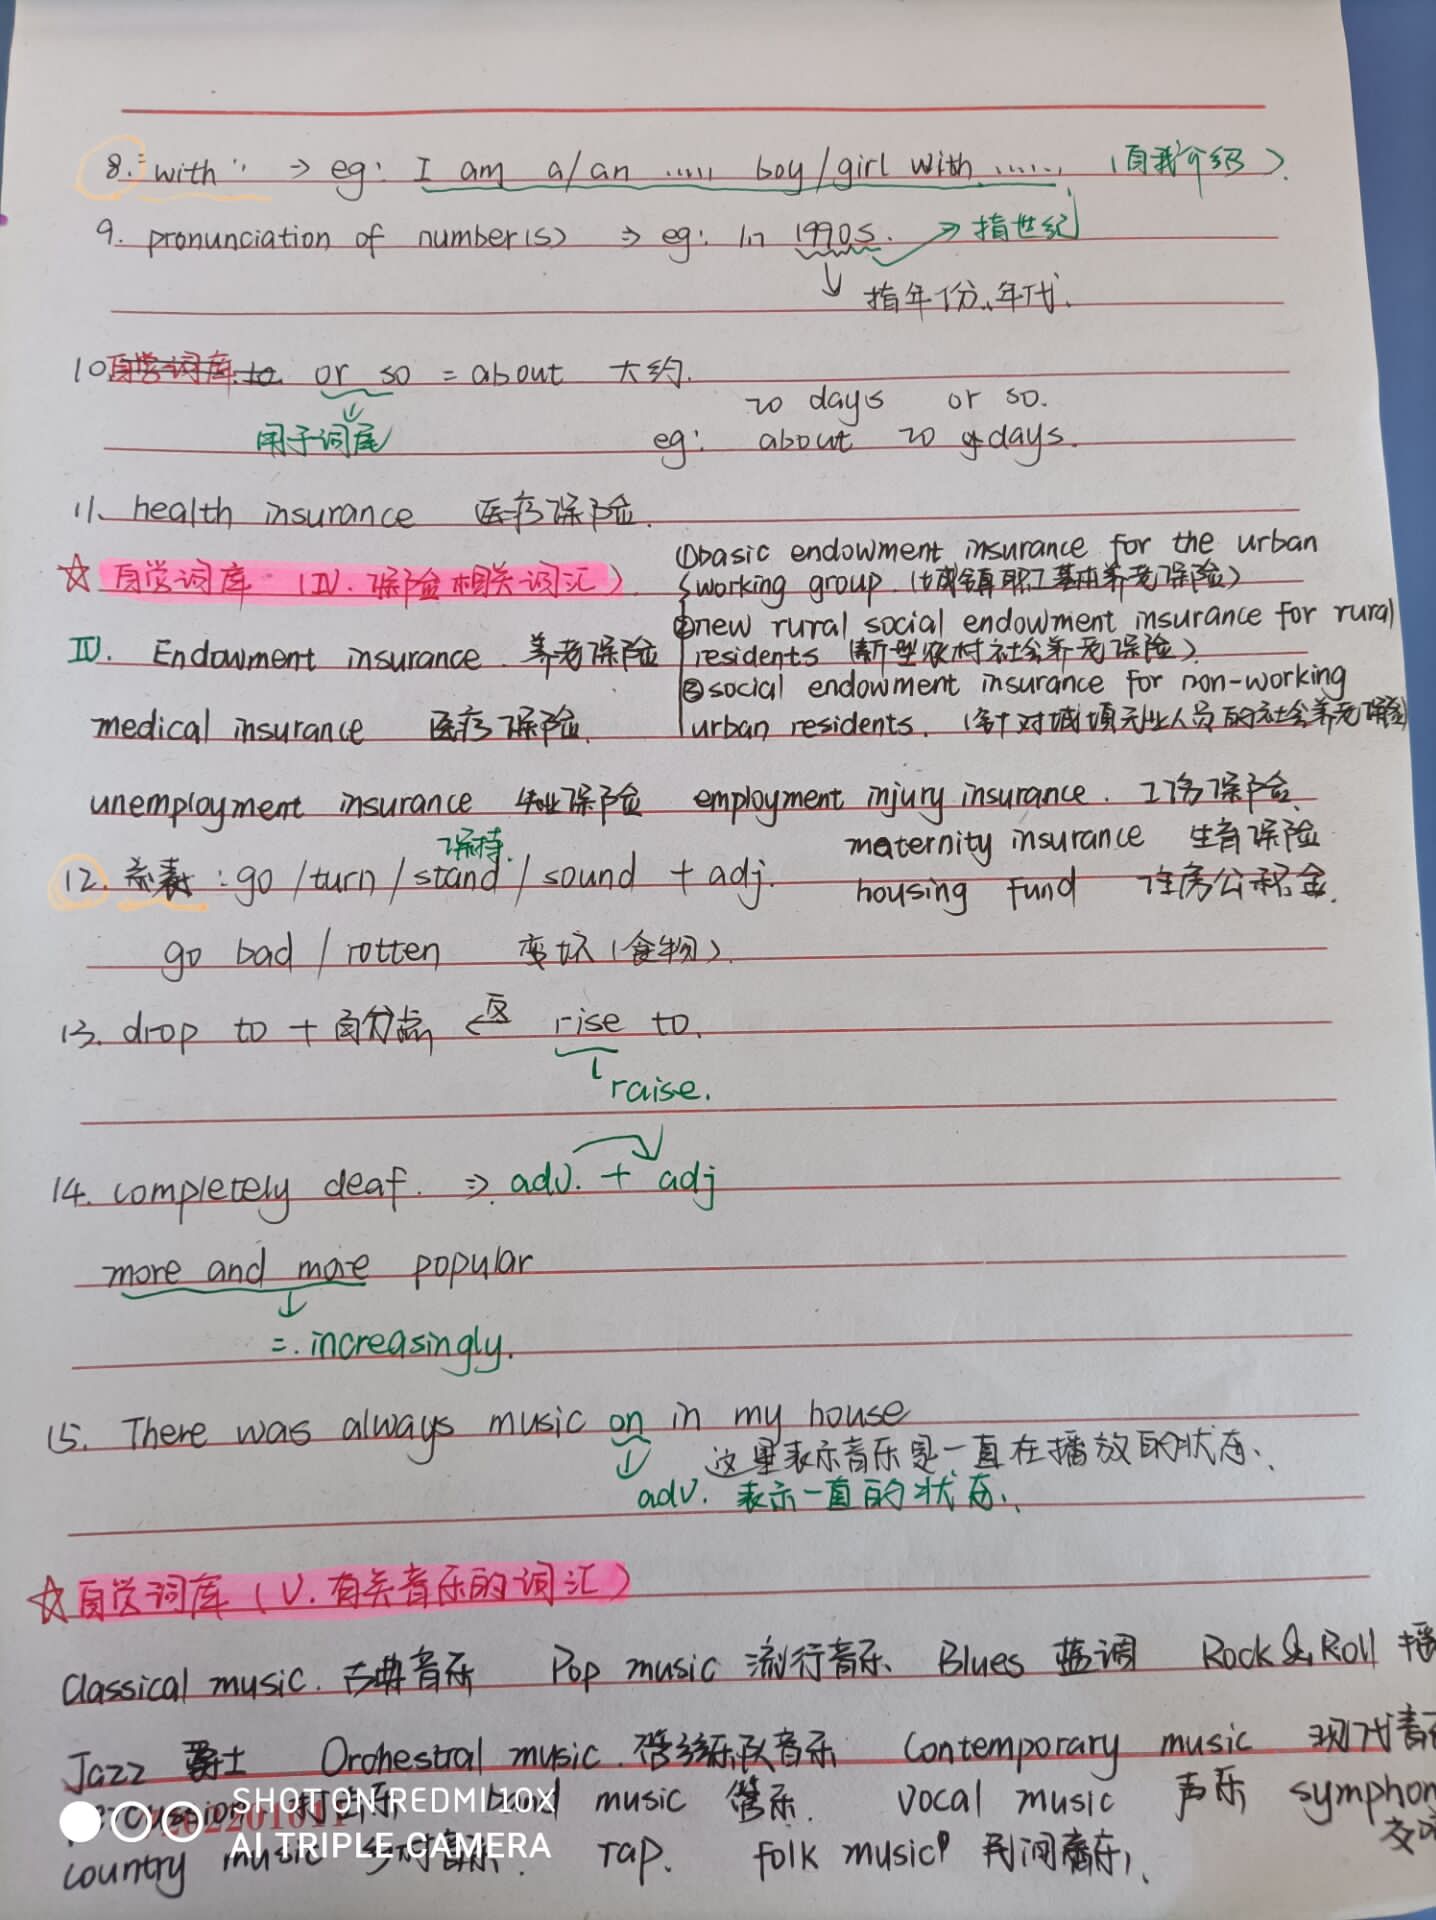 8. "with" → eg: I am a/an ..... boy/girl with ...... (自我介绍).
9. pronunciation of number(s) ⇒ eg: In 1990s. → 指世纪
↓ 指年份、年代.
10 自学词库 to or so = about 大约.
20 days or so.
用于词尾 eg: about 20 days.
11. health insurance 医疗保险.
①basic endowment insurance for the urban
☆ 自学词库 (IV. 保险相关词汇). working group. (城镇职工基本养老保险)
②new rural social endowment insurance for rural
IV. Endowment insurance. 养老保险 residents (新型农村社会养老保险).
③social endowment insurance for non-working
medical insurance 医疗保险. urban residents. (针对城镇无业人员的社会养老保险)
unemployment insurance 失业保险 employment injury insurance. 工伤保险.
保持. maternity insurance 生育保险
12. 系表: go/turn/stand/sound + adj. housing fund 住房公积金.
go bad/rotten 变坏(食物).
13. drop to + 百分点 ← 反 rise to.
raise.
14. completely deaf. ⇒ adv. + adj
more and more popular
=. increasingly.
15. There was always music on in my house
这里表示音乐是一直在播放的状态.
adv. 表示一直的状态.
☆自学词库 (V. 有关音乐的词汇)
Classical music. 古典音乐 Pop music 流行音乐、 Blues 蓝调 Rock & Roll 摇
Jazz 爵士 Orchestral music. 管弦乐队音乐 Contemporary music 现代音
percussion 打击乐 band music 管乐. vocal music 声乐 symphon
country music 乡村音乐. rap. folk music 民间音乐. 交
202201011
SHOT ON REDMI 10X
AI TRIPLE CAMERA